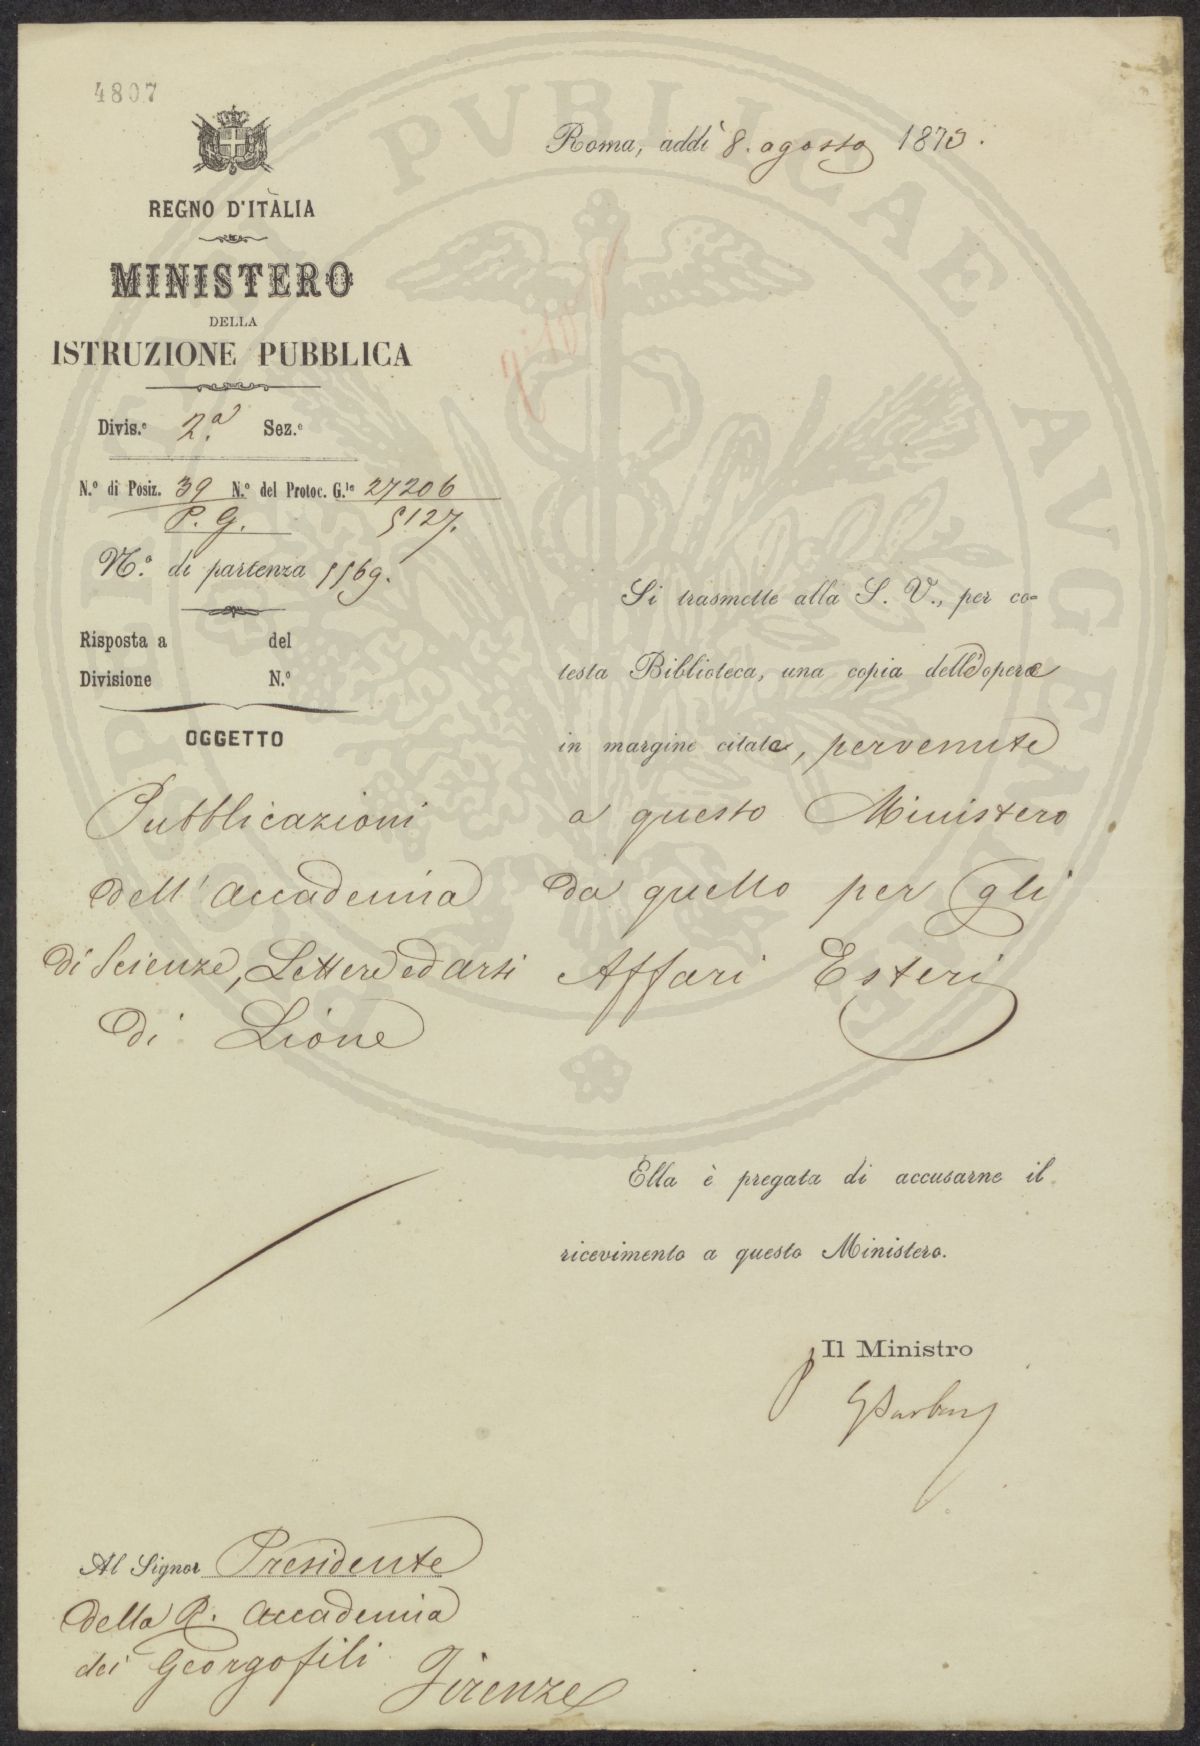 4807
Roma, addì 8. agosto 1875.
REGNO D'ITALIA
MINISTERO
DELLA
ISTRUZIONE PUBBLICA
Divis.e 2.a Sez.e
N.o di Posiz. 39 N.o del Protoc. G.le 27206
P. G. 5127.
N.o di partenza 5569.
Risposta a del
Divisione N.o
OGGETTO
Pubblicazioni
dell'Accademia
di Scienze, Lettere ed Arti
di Lione
Si trasmette alla S. V., per co-
testa Biblioteca, una copia delle opere
in margine citate, pervenute
a questo Ministero
da quello per gli
Affari Esteri
Ella è pregata di accusarne il
ricevimento a questo Ministero.
Il Ministro
Al Signor Presidente
della R. Accademia
dei Georgofili
Firenze
PUBLICAE